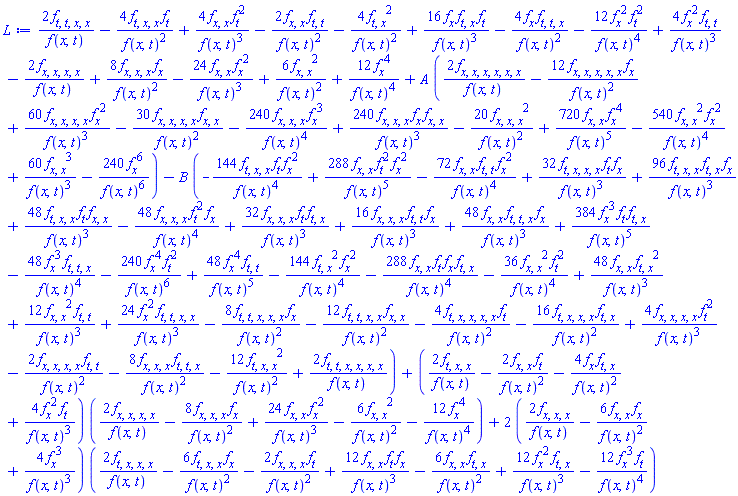 L := \frac{2 f_{t,t,x,x}}{f(x,t)} - \frac{4 f_{t,x,x} f_t}{f(x,t)^2} + \frac{4 f_{x,x} f_t^2}{f(x,t)^3} - \frac{2 f_{x,x} f_{t,t}}{f(x,t)^2} - \frac{4 f_{t,x}^2}{f(x,t)^2} + \frac{16 f_x f_t f_{t,x}}{f(x,t)^3} - \frac{4 f_x f_{t,t,x}}{f(x,t)^2} - \frac{12 f_x^2 f_t^2}{f(x,t)^4} + \frac{4 f_x^2 f_{t,t}}{f(x,t)^3}
- \frac{2 f_{x,x,x,x}}{f(x,t)} + \frac{8 f_{x,x,x} f_x}{f(x,t)^2} - \frac{24 f_{x,x} f_x^2}{f(x,t)^3} + \frac{6 f_{x,x}^2}{f(x,t)^2} + \frac{12 f_x^4}{f(x,t)^4} + A ( \frac{2 f_{x,x,x,x,x,x}}{f(x,t)} - \frac{12 f_{x,x,x,x,x} f_x}{f(x,t)^2}
+ \frac{60 f_{x,x,x,x} f_x^2}{f(x,t)^3} - \frac{30 f_{x,x,x,x} f_{x,x}}{f(x,t)^2} - \frac{240 f_{x,x,x} f_x^3}{f(x,t)^4} + \frac{240 f_{x,x,x} f_x f_{x,x}}{f(x,t)^3} - \frac{20 f_{x,x,x}^2}{f(x,t)^2} + \frac{720 f_{x,x} f_x^4}{f(x,t)^5} - \frac{540 f_{x,x}^2 f_x^2}{f(x,t)^4}
+ \frac{60 f_{x,x}^3}{f(x,t)^3} - \frac{240 f_x^6}{f(x,t)^6} ) - B ( -\frac{144 f_{t,x,x} f_t f_x^2}{f(x,t)^4} + \frac{288 f_{x,x} f_t^2 f_x^2}{f(x,t)^5} - \frac{72 f_{x,x} f_{t,t} f_x^2}{f(x,t)^4} + \frac{32 f_{t,x,x,x} f_t f_x}{f(x,t)^3} + \frac{96 f_{t,x,x} f_{t,x} f_x}{f(x,t)^3}
+ \frac{48 f_{t,x,x} f_t f_{x,x}}{f(x,t)^3} - \frac{48 f_{x,x,x} f_t^2 f_x}{f(x,t)^4} + \frac{32 f_{x,x,x} f_t f_{t,x}}{f(x,t)^3} + \frac{16 f_{x,x,x} f_{t,t} f_x}{f(x,t)^3} + \frac{48 f_{x,x} f_{t,t,x} f_x}{f(x,t)^3} + \frac{384 f_x^3 f_t f_{t,x}}{f(x,t)^5}
- \frac{48 f_x^3 f_{t,t,x}}{f(x,t)^4} - \frac{240 f_x^4 f_t^2}{f(x,t)^6} + \frac{48 f_x^4 f_{t,t}}{f(x,t)^5} - \frac{144 f_{t,x}^2 f_x^2}{f(x,t)^4} - \frac{288 f_{x,x} f_t f_x f_{t,x}}{f(x,t)^4} - \frac{36 f_{x,x}^2 f_t^2}{f(x,t)^4} + \frac{48 f_{x,x} f_{t,x}^2}{f(x,t)^3}
+ \frac{12 f_{x,x}^2 f_{t,t}}{f(x,t)^3} + \frac{24 f_x^2 f_{t,t,x,x}}{f(x,t)^3} - \frac{8 f_{t,t,x,x,x} f_x}{f(x,t)^2} - \frac{12 f_{t,t,x,x} f_{x,x}}{f(x,t)^2} - \frac{4 f_{t,x,x,x,x} f_t}{f(x,t)^2} - \frac{16 f_{t,x,x,x} f_{t,x}}{f(x,t)^2} + \frac{4 f_{x,x,x,x} f_t^2}{f(x,t)^3}
- \frac{2 f_{x,x,x,x} f_{t,t}}{f(x,t)^2} - \frac{8 f_{x,x,x} f_{t,t,x}}{f(x,t)^2} - \frac{12 f_{t,x,x}^2}{f(x,t)^2} + \frac{2 f_{t,t,x,x,x,x}}{f(x,t)} ) + ( \frac{2 f_{t,x,x}}{f(x,t)} - \frac{2 f_{x,x} f_t}{f(x,t)^2} - \frac{4 f_x f_{t,x}}{f(x,t)^2}
+ \frac{4 f_x^2 f_t}{f(x,t)^3} ) ( \frac{2 f_{x,x,x,x}}{f(x,t)} - \frac{8 f_{x,x,x} f_x}{f(x,t)^2} + \frac{24 f_{x,x} f_x^2}{f(x,t)^3} - \frac{6 f_{x,x}^2}{f(x,t)^2} - \frac{12 f_x^4}{f(x,t)^4} ) + 2 ( \frac{2 f_{x,x,x}}{f(x,t)} - \frac{6 f_{x,x} f_x}{f(x,t)^2}
+ \frac{4 f_x^3}{f(x,t)^3} ) ( \frac{2 f_{t,x,x,x}}{f(x,t)} - \frac{6 f_{t,x,x} f_x}{f(x,t)^2} - \frac{2 f_{x,x,x} f_t}{f(x,t)^2} + \frac{12 f_{x,x} f_t f_x}{f(x,t)^3} - \frac{6 f_{x,x} f_{t,x}}{f(x,t)^2} + \frac{12 f_x^2 f_{t,x}}{f(x,t)^3} - \frac{12 f_x^3 f_t}{f(x,t)^4} )